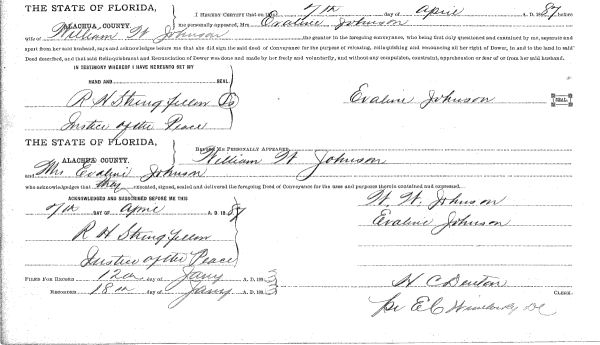 THE STATE OF FLORIDA,
ALACHUA COUNTY.
I HEREBY CERTIFY that on this 7th day of April A. D. 1887 before
me personally appeared, Mrs Evaline Johnson
wife of William W Johnson the grantor in the foregoing conveyance, who being first duly questioned and examined by me, separate and
apart from her said husband, says and acknowledges before me that she did sign the said deed of Conveyance for the purpose of releasing, relinquishing and renouncing all her right of Dower, in and to the land in said
Deed described, and that said Relinquishment and Renunciation of Dower was done and made by her freely and voluntarily, and without any compulsion, constraint, apprehension or fear of or from her said husband.
IN TESTIMONY WHEREOF I HAVE HEREUNTO SET MY
HAND AND SEAL
R H Stringfellow
Evaline Johnson SEAL.
Justice of the Peace
THE STATE OF FLORIDA,
ALACHUA COUNTY.
BEFORE ME PERSONALLY APPEARED William W Johnson
and Mrs Evaline Johnson
who acknowledges that they executed, signed, sealed and delivered the foregoing Deed of Conveyance for the uses and purpose therein contained and expressed.
ACKNOWLEDGED AND SUBSCRIBED BEFORE ME THIS
7th DAY OF April A. D. 1887
W. W. Johnson
Evaline Johnson
R H Stringfellow
Justice of the Peace
FILED FOR RECORD 12th day of Jany A. D. 188
RECORDED 18th day of Jany A. D. 188
H C Denton CLERK.
pr E C DC